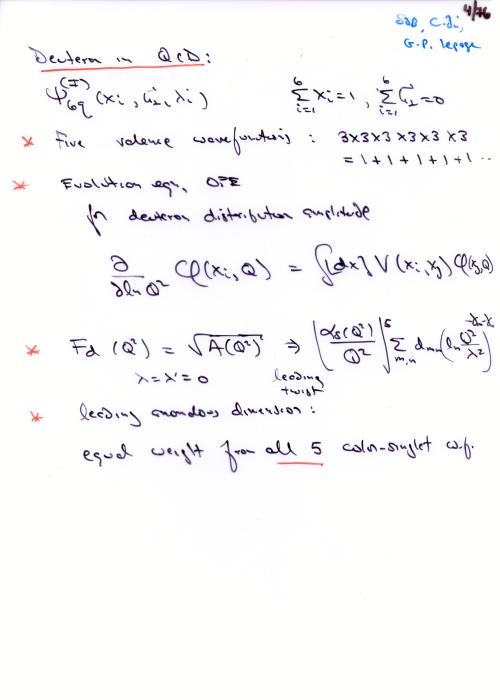 4/76
SJB, C. Ji,
G.P. Lepage
Deuteron in QCD:
Ψ_{6q}^{(I)} (x_i, k⃗_{⊥i}, λ_i)   \sum_{i=1}^{6} x_i = 1, \sum_{i=1}^{6} k⃗_{⊥i} = 0
* Five valence wavefunctions : 3×3×3×3×3×3
= 1+1+1+1+1 ...
* Evolution eqn, OPE
for deuteron distribution amplitude
∂/∂ln Q² φ(x_i, Q) = ∫[dx] V(x_i, y_j) φ(y_j, Q)
* F_d (Q²) = √A(Q²) ⇒ [α_s(Q²)/Q²]^5 \sum_{m,n} d_{mn} (ln Q²/λ²)^{-γ_m-γ_n}
λ = λ' = 0   leading
twist
* leading anomalous dimension :
equal weight from all 5 color-singlet w.f.